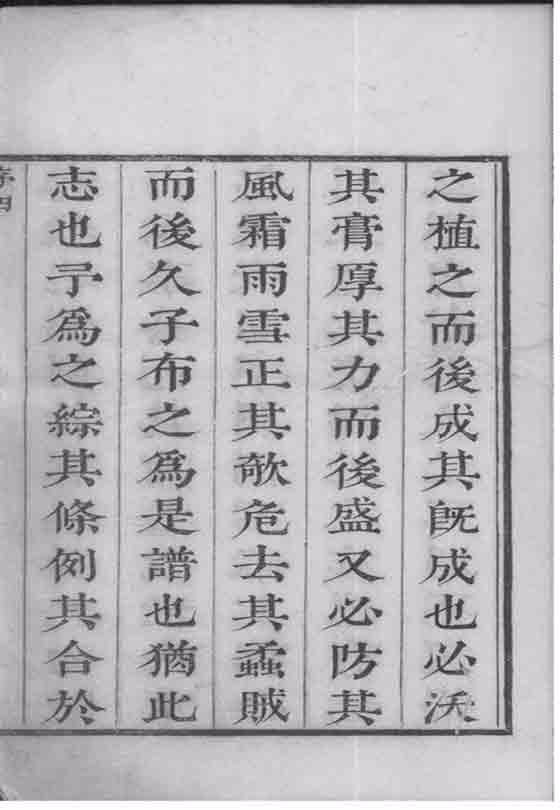 之植之而後成其旣成也必沃
其膏厚其力而後盛又必防其
風霜雨雪正其欹危去其蟊賊
而後久子布之爲是譜也猶此
志也予爲之綜其條例其合於
序四